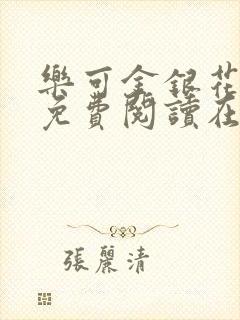 樂可金銀花
免費閱讀在
張麗清